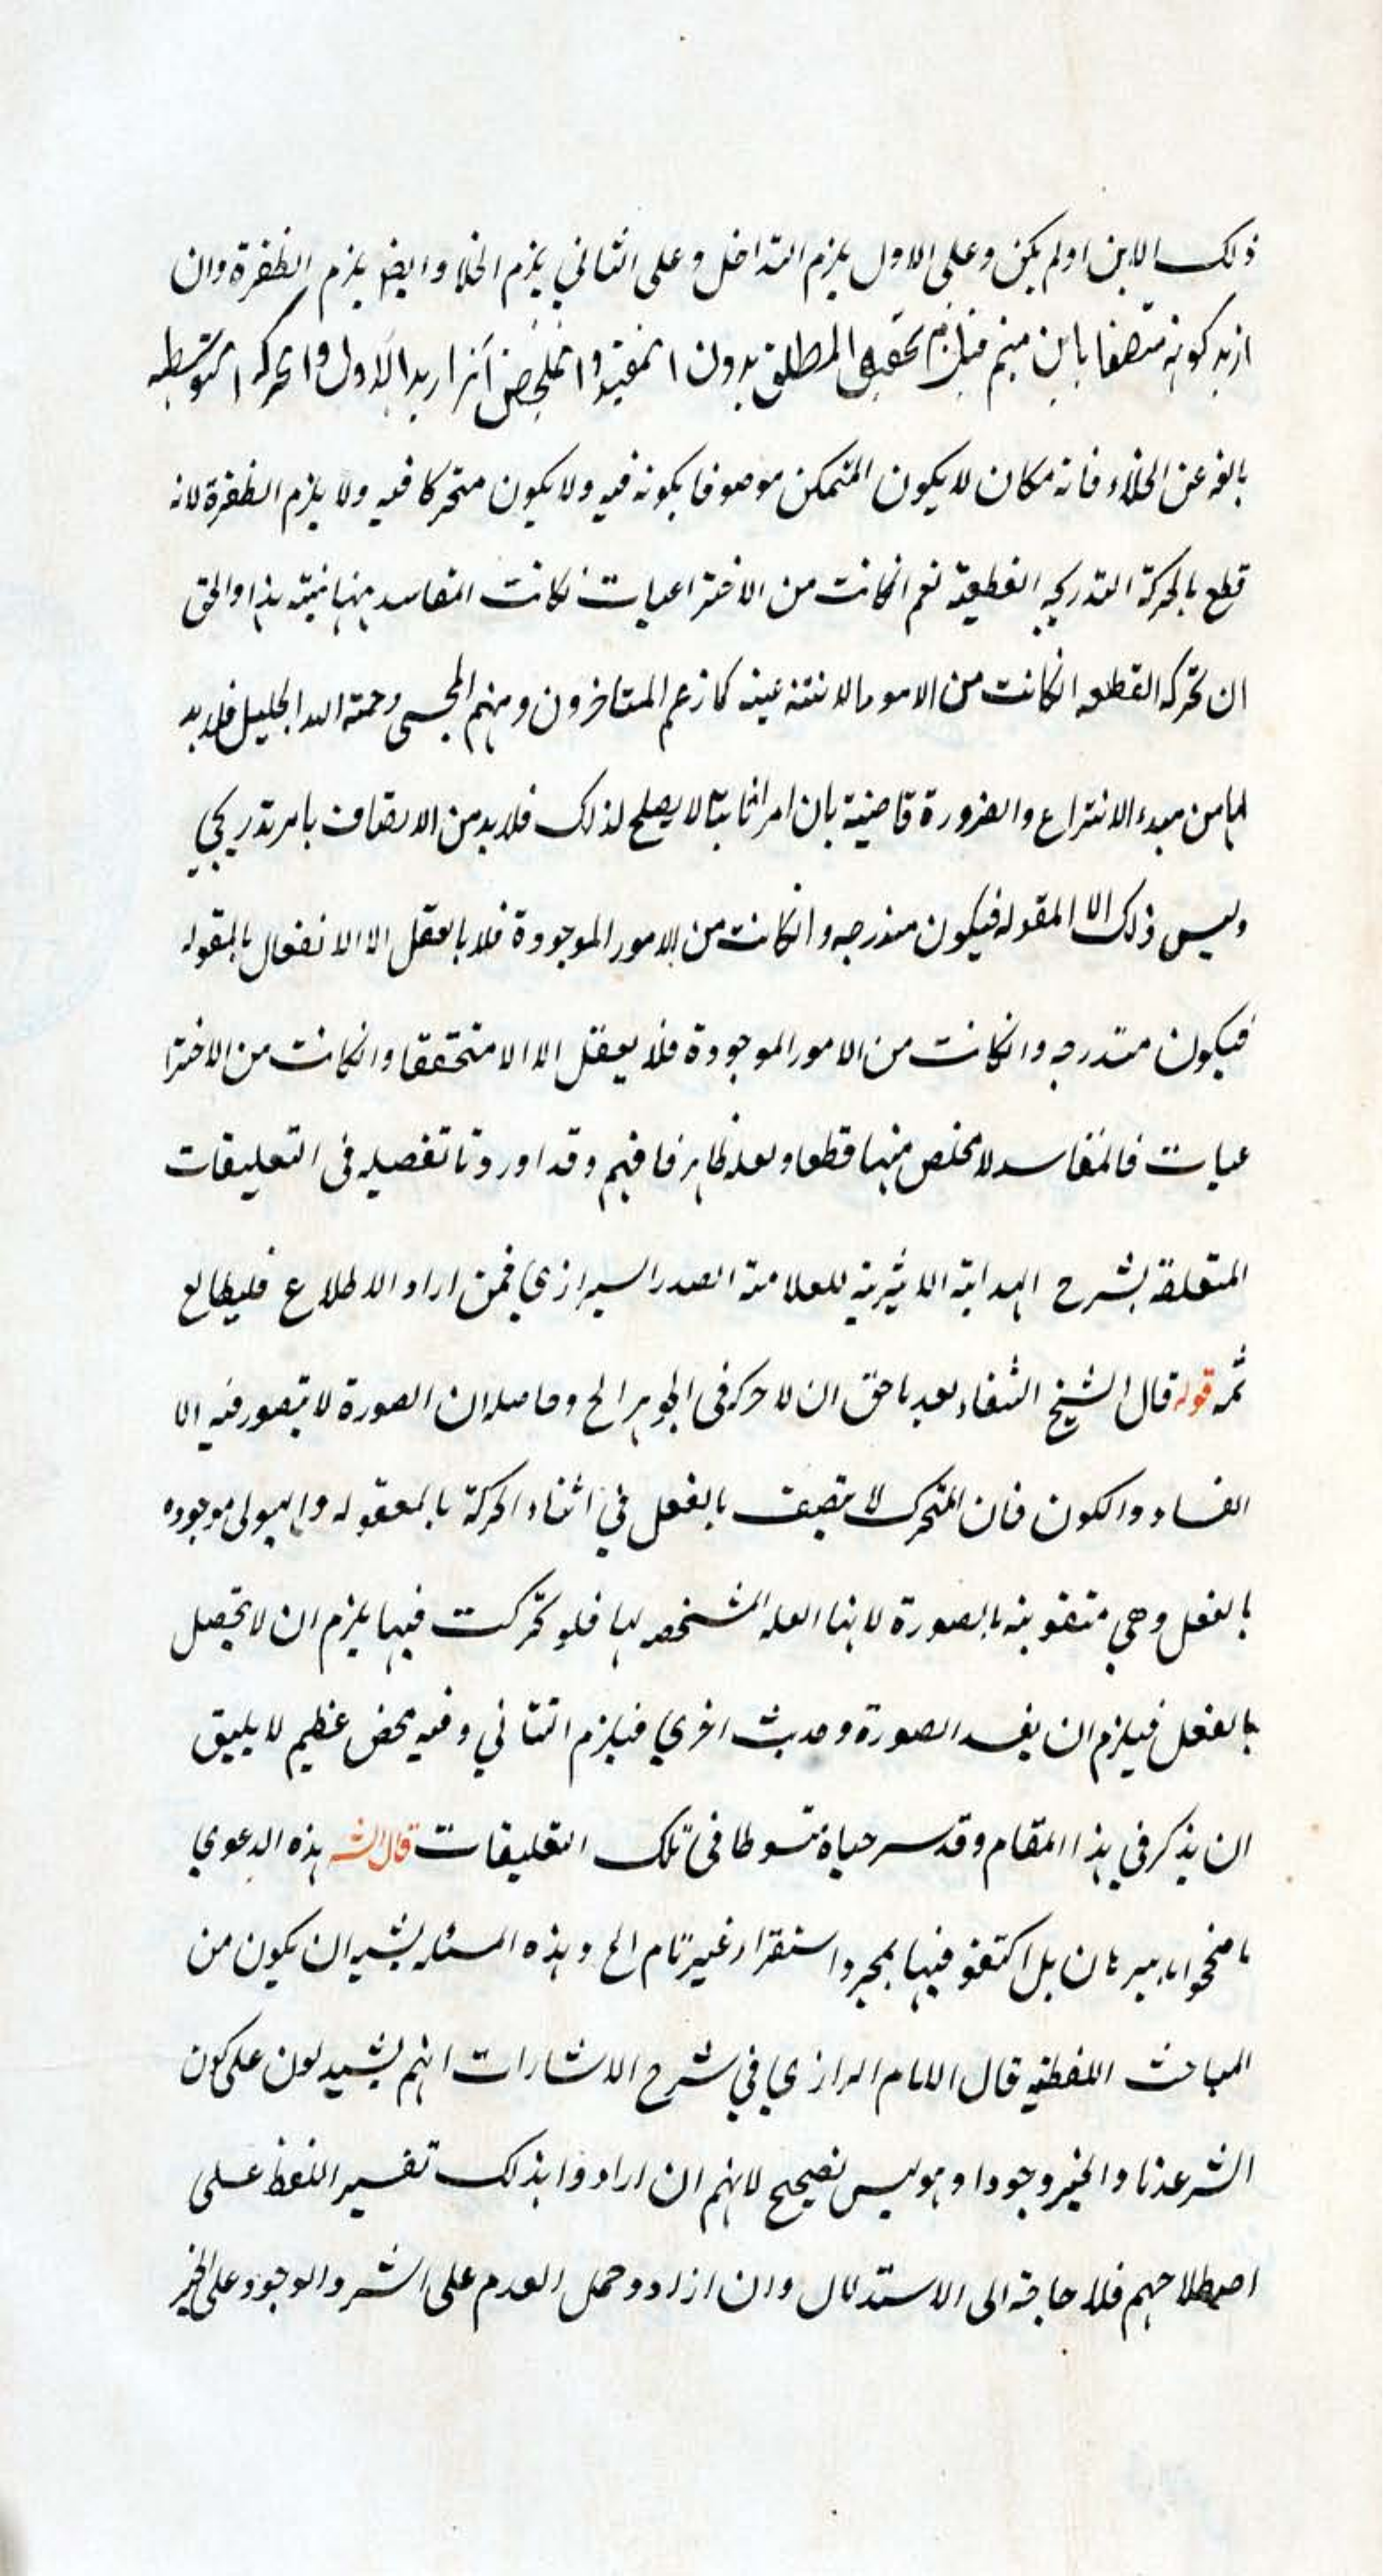 ذلك الاين اولم يكن وعلى الاول يلزم التداخل وعلى الثاني يلزم الخلا وايضا يلزم الطفرة وان
اريد كونه متصفا باين مبهم فيلزم تحقق المطلق بدون المقيد والملخص انا نريد الاول والحركه التوسطيه
بالغه عن الخلاء فانه مكان لا يكون المتمكن موصوفا بكونه فيه ولا يكون متحركا فيه ولا يلزم الطفرة لانه
قطع بالحركة التدريجيه القطعية نعم انكانت من الاختراعيات لكانت المفاسد مبتنية بذا والحق
ان الحركه القطعيه انكانت من الامور الانتزاعيه كما زعم المتاخرون ومنهم المحسى رحمة الله الجليل فلا بد
لها من مبدء الانتزاع والضرورة قاضية بان امرا ثابتا لا يصلح لذلك فلا بد من الاتصاف بامر تدريجي
وليس ذلك الا المقوله فيكون مندرجه وانكانت من الامور الموجودة فلا بالعقل الا الانفعال بالمقوله
فيكون متدرجه وانكانت من الامور الموجودة فلا يعقل الا الا متحققا وانكانت من الاخترا
عيات فالمفاسد لا مخلص منها قطعا ولعله ظاهر فافهم وقد اوردنا تفصيله في التعليقات
المتعلقة بشرح الهداية الاثيرية للعلامة الصدر السيرازي فمن اراد الاطلاع فليطالع
ثمه قوله قال الشيخ الشفاء بعد ما حق ان لا حركه في الجوهر الخ وحاصله ان الصورة لا يتصور فيه الا
الفساد والكون فان المتحرك لا يتصف بالفعل في اثناء الحركة بالمعقوله والهيولى موجوده
بالفعل وهي متقومة بالصورة لانها العله المشخصه لها فلو تحركت فيها يلزم ان لا تحصل
بالفعل فيلزم ان يفسد الصورة وحدث اخري فيلزم التتالي وفيه محض عظيم لا يليق
ان يذكر في هذا المقام وقد سرحناه متسوطا في تلك التعليقات قال الش هذه الدعوي
ما صححوا بالبيرهان بل اكتفو فيها بمجرد استقراء غير تام الخ وهذه المسئله يشبه ان يكون من
المباحث اللفظية قال الامام الرازي في شرح الاشارات انهم يستدلون على كون
الشر عدما والخير وجودا وهو ليس بصحيح لانهم ان ارادوا بذلك تفسير اللفظ على
اصطلاحهم فلا حاجة الى الاستدلال وان ارادو حمل العدم على الشر والوجود على الخير